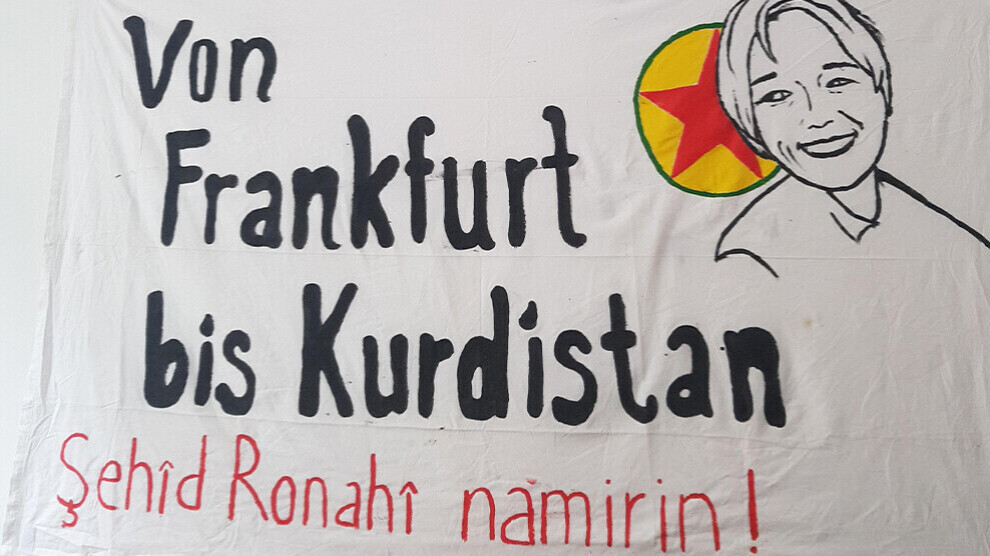 Von
Frankfurt
bis Kurdistan
Şehîd Ronahî namirin!